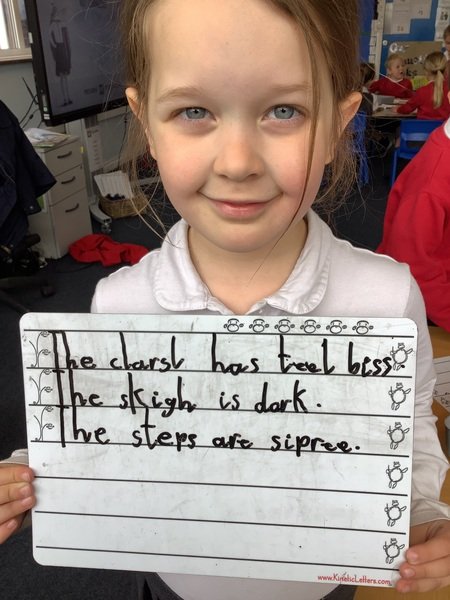 The clarsl has treel biss.
The skigh is dark.
The steps are sipree.
www.KineticLetters.com